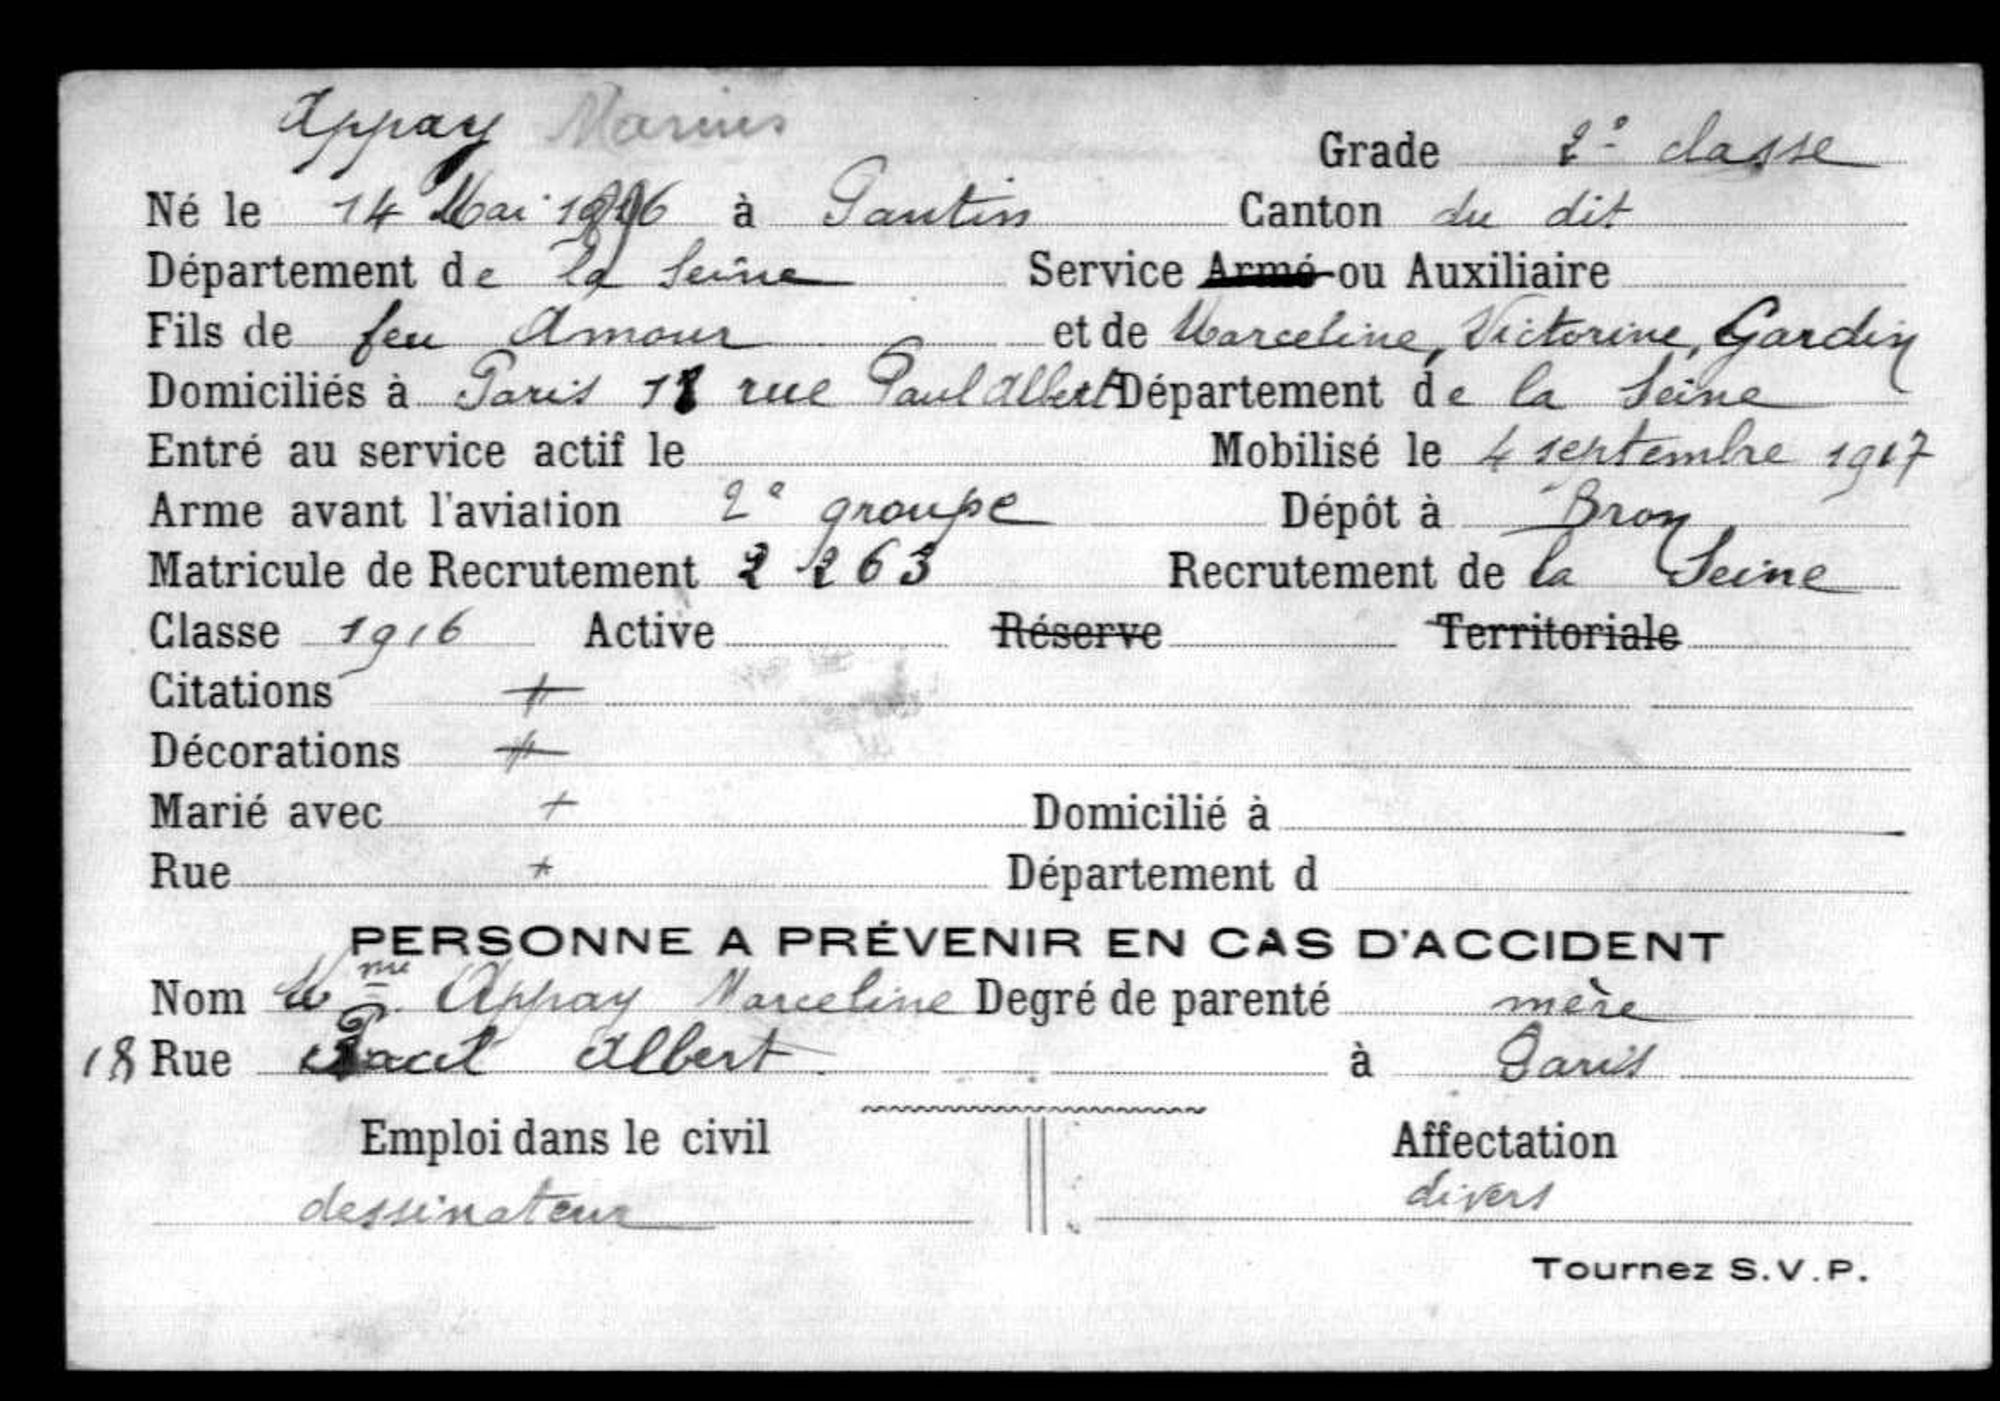 Appay Marius
Grade 2e classe
Né le 14 Mai 1896 à Pantin Canton du dit
Département de la Seine Service Armé ou Auxiliaire
Fils de feu Amour et de Marceline, Victorine, Gardin
Domiciliés à Paris 18 rue Paul Albert Département de la Seine
Entré au service actif le Mobilisé le 4 septembre 1917
Arme avant l'aviation 2e groupe Dépôt à Bron
Matricule de Recrutement 2 263 Recrutement de la Seine
Classe 1916 Active Réserve Territoriale
Citations
Décorations
Marié avec + Domicilié à
Rue + Département d
PERSONNE A PRÉVENIR EN CAS D'ACCIDENT
Nom Mme Appay Marceline Degré de parenté mère
18 Rue Paul Albert à Paris
Emploi dans le civil Affectation
dessinateur divers
Tournez S.V.P.